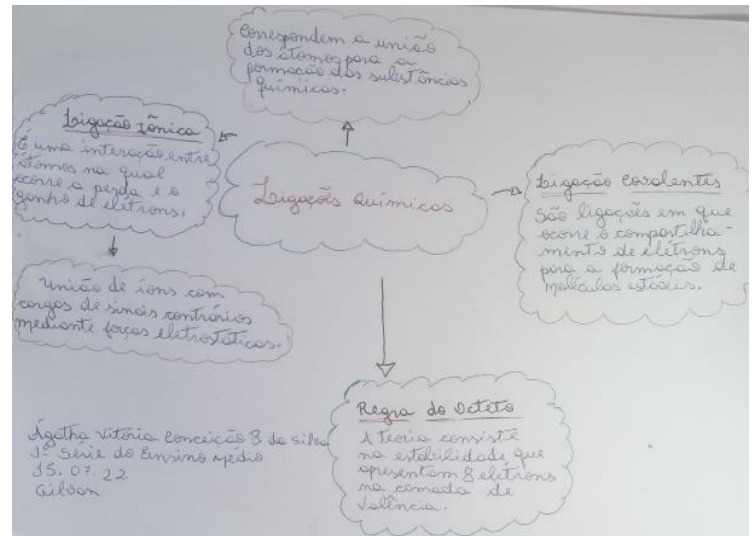 Correspondem a união
dos átomos para a
formação das substâncias
químicas.
Ligação Iônica
É uma interação entre
átomos na qual
ocorre a perda e o
ganho de elétrons.
Ligações Químicas
Ligação Covalentes
São ligações em que
ocorre o compartilha-
mento de elétrons
para a formação de
moléculas estáveis.
União de íons com
cargas de sinais contrários
mediante forças eletrostáticas.
Regra do Octeto
A teoria consiste
na estabilidade que
apresentam 8 elétrons
na camada de
valência.
Ágatha Vitória Conceição B da Silva
1ª Série do Ensino Médio
15.07.22
Gilvan